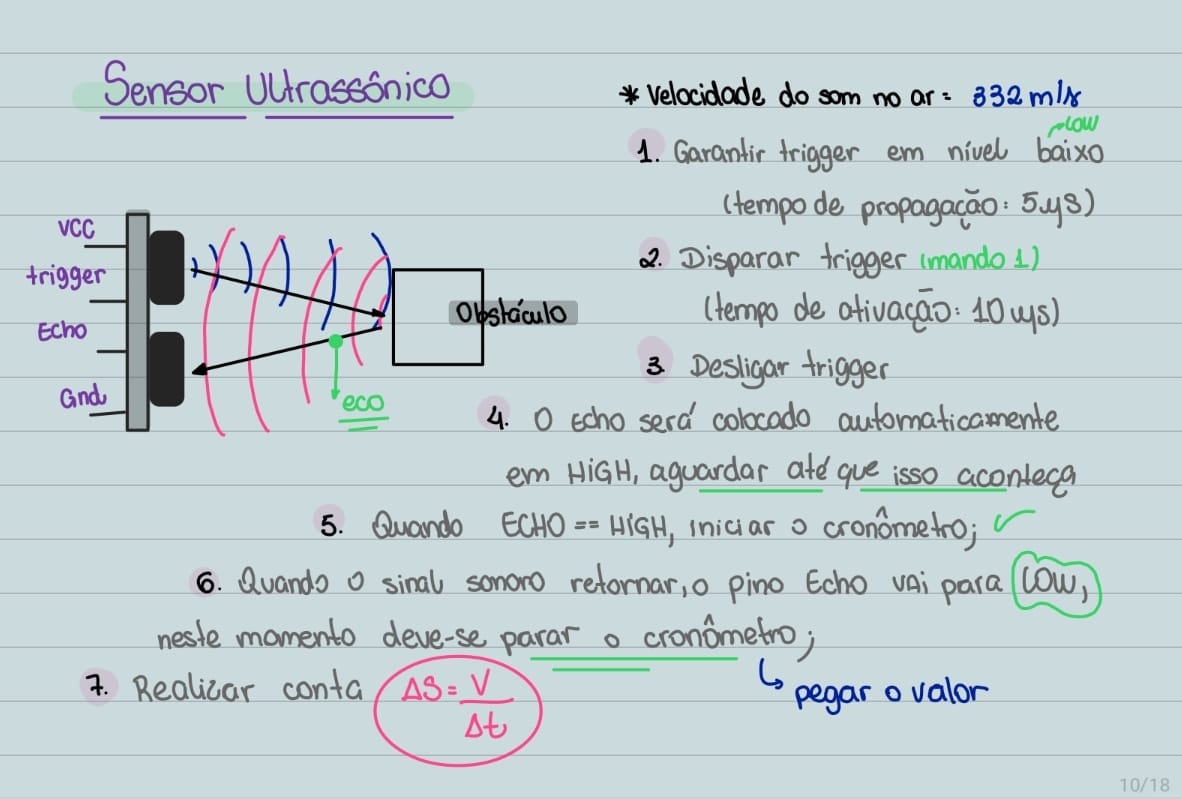 Sensor Ultrassônico
* Velocidade do som no ar = 332 m/s
LOW
1. Garantir trigger em nível baixo
(tempo de propagação: 5µs)
2. Disparar trigger (mando 1)
(tempo de ativação: 10 µs)
3. Desligar trigger
VCC
trigger
Echo
Gnd
Obstáculo
eco
4. O Echo será colocado automaticamente
em HIGH, aguardar até que isso aconteça
5. Quando ECHO == HIGH, iniciar o cronômetro;
6. Quando o sinal sonoro retornar, o pino Echo vai para LOW,
neste momento deve-se parar o cronômetro;
pegar o valor
7. Realizar conta ΔS = V
Δt
10/18